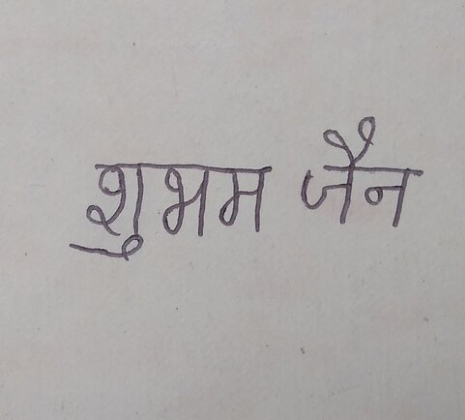 शुभम जैन